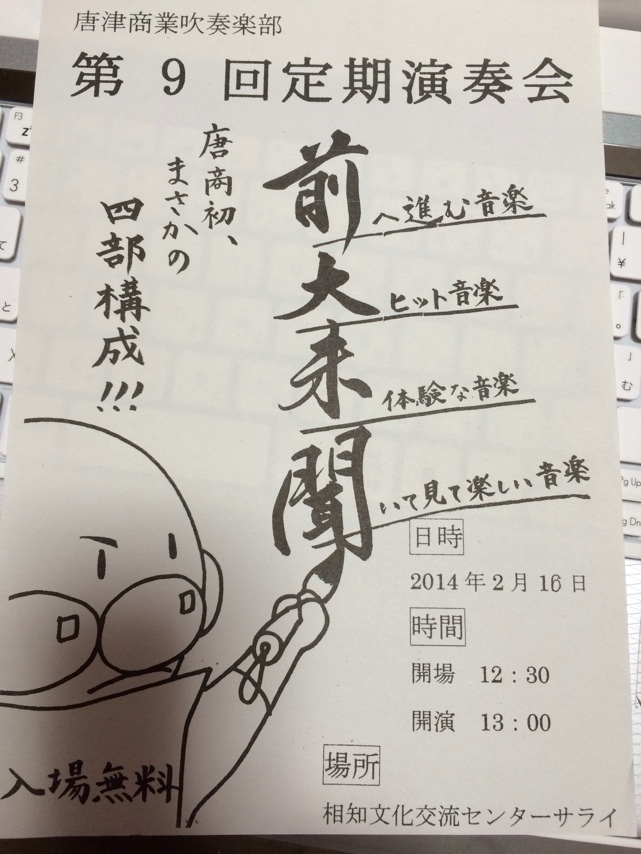 唐津商業吹奏楽部
第9回定期演奏会
唐商初、
まさかの
四部構成!!!
前へ進む音楽
大ヒット音楽
未体験な音楽
聞いて見て楽しい音楽
日時
2014年2月16日
時間
開場 12:30
開演 13:00
場所
相知文化交流センターサライ
入場無料